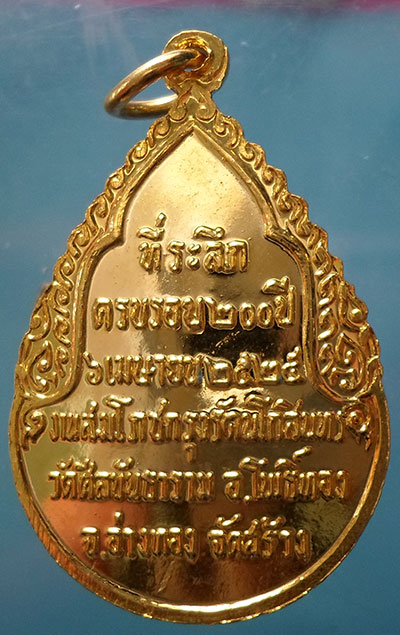 ที่ระลึก
ครบรอบ๒๐๐ปี
๖เมษายน๒๕๒๕
งานสมโภชกรุงรัตนโกสินทร์
วัดศีลขันธาราม อ.โพธิ์ทอง
จ.อ่างทอง จัดสร้าง